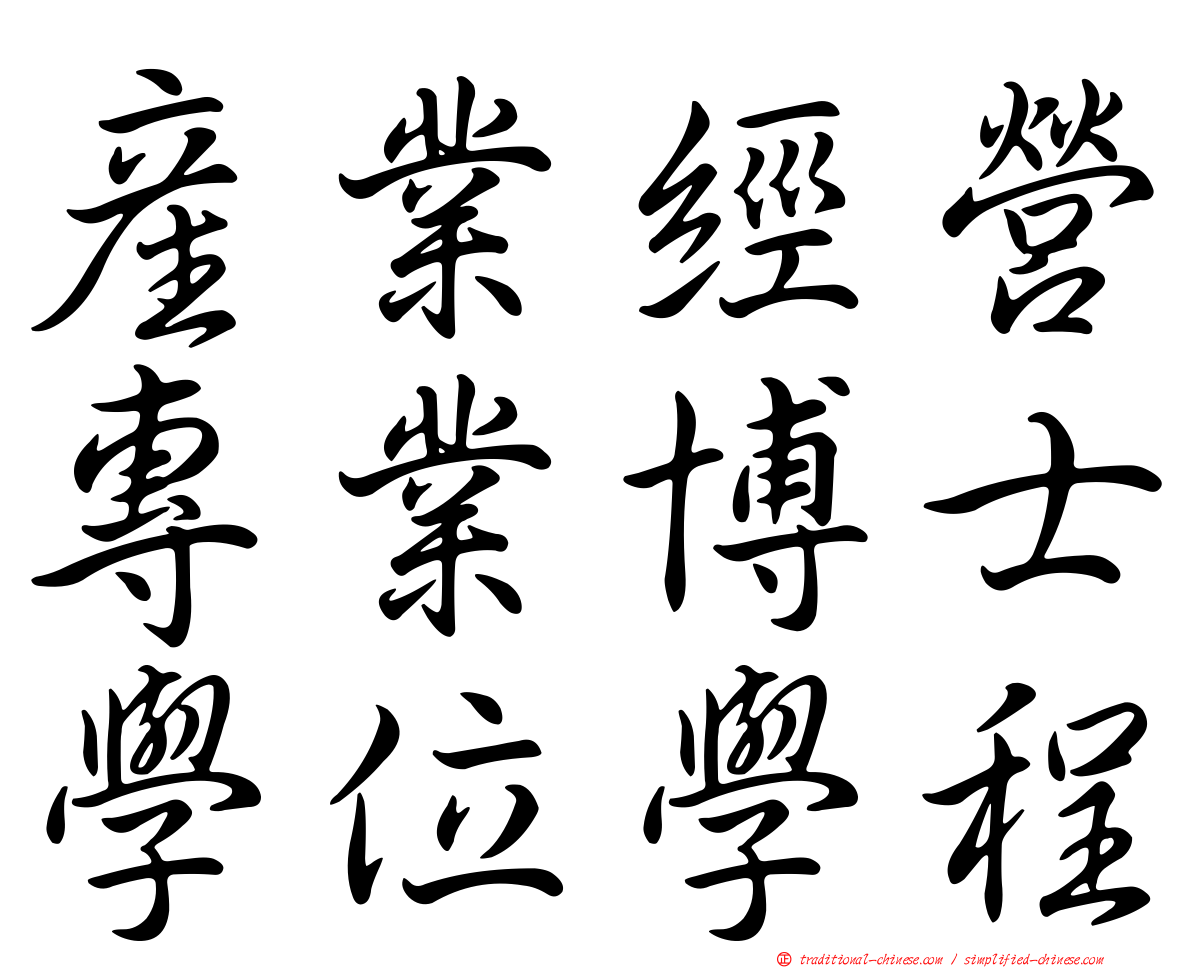 産業經營
專業博士
學位學程
正 traditional-chinese.com / simplified-chinese.com